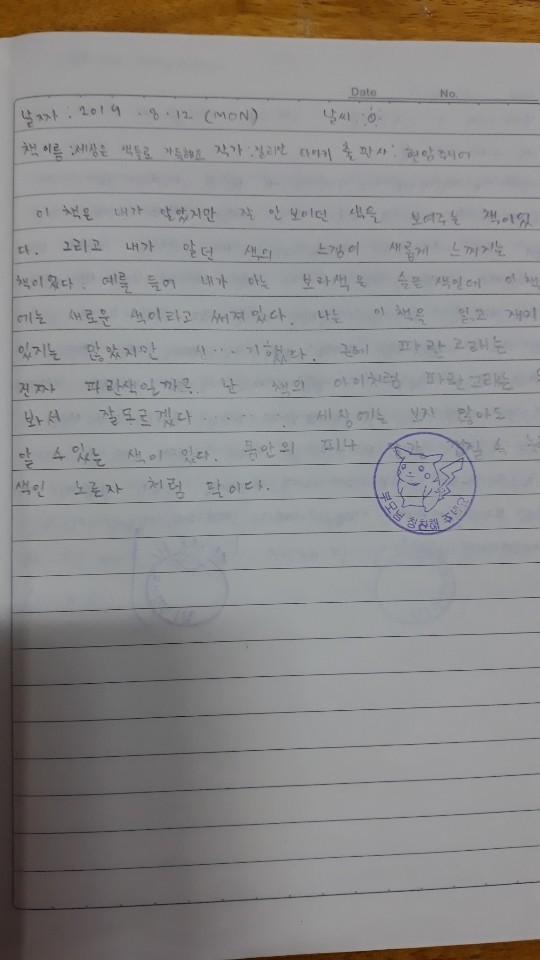 Date No.
날짜 : 2019 . 8 . 12 (MON) 날씨 :
책 이름 : 세상은 색들로 가득해요 작가 : 출판사 : 현암주니어
이 책은 내가 알았지만 잘 안 보이던 색들 보여주는 책이었
다. 그리고 내가 알던 색의 느낌이 새롭게 느껴지는
책이었다. 예를 들어 내가 아는 보라색은 슬픈 색인데 이 책
에는 새로운 색이라고 써져있다. 나는 이 책을 읽고 재미
있지는 않았지만 시··· 기했다. 근데 파란 고래는
진짜 파란색일까? 난 책의 아이처럼 파란 고래는
봐서 잘모르겠다 ······. 세상에는 보지 않아도
알 수 있는 색이 있다. 몸안의 피나 속
색인 노른자 처럼 말이다.
부모님 칭찬해 주세요